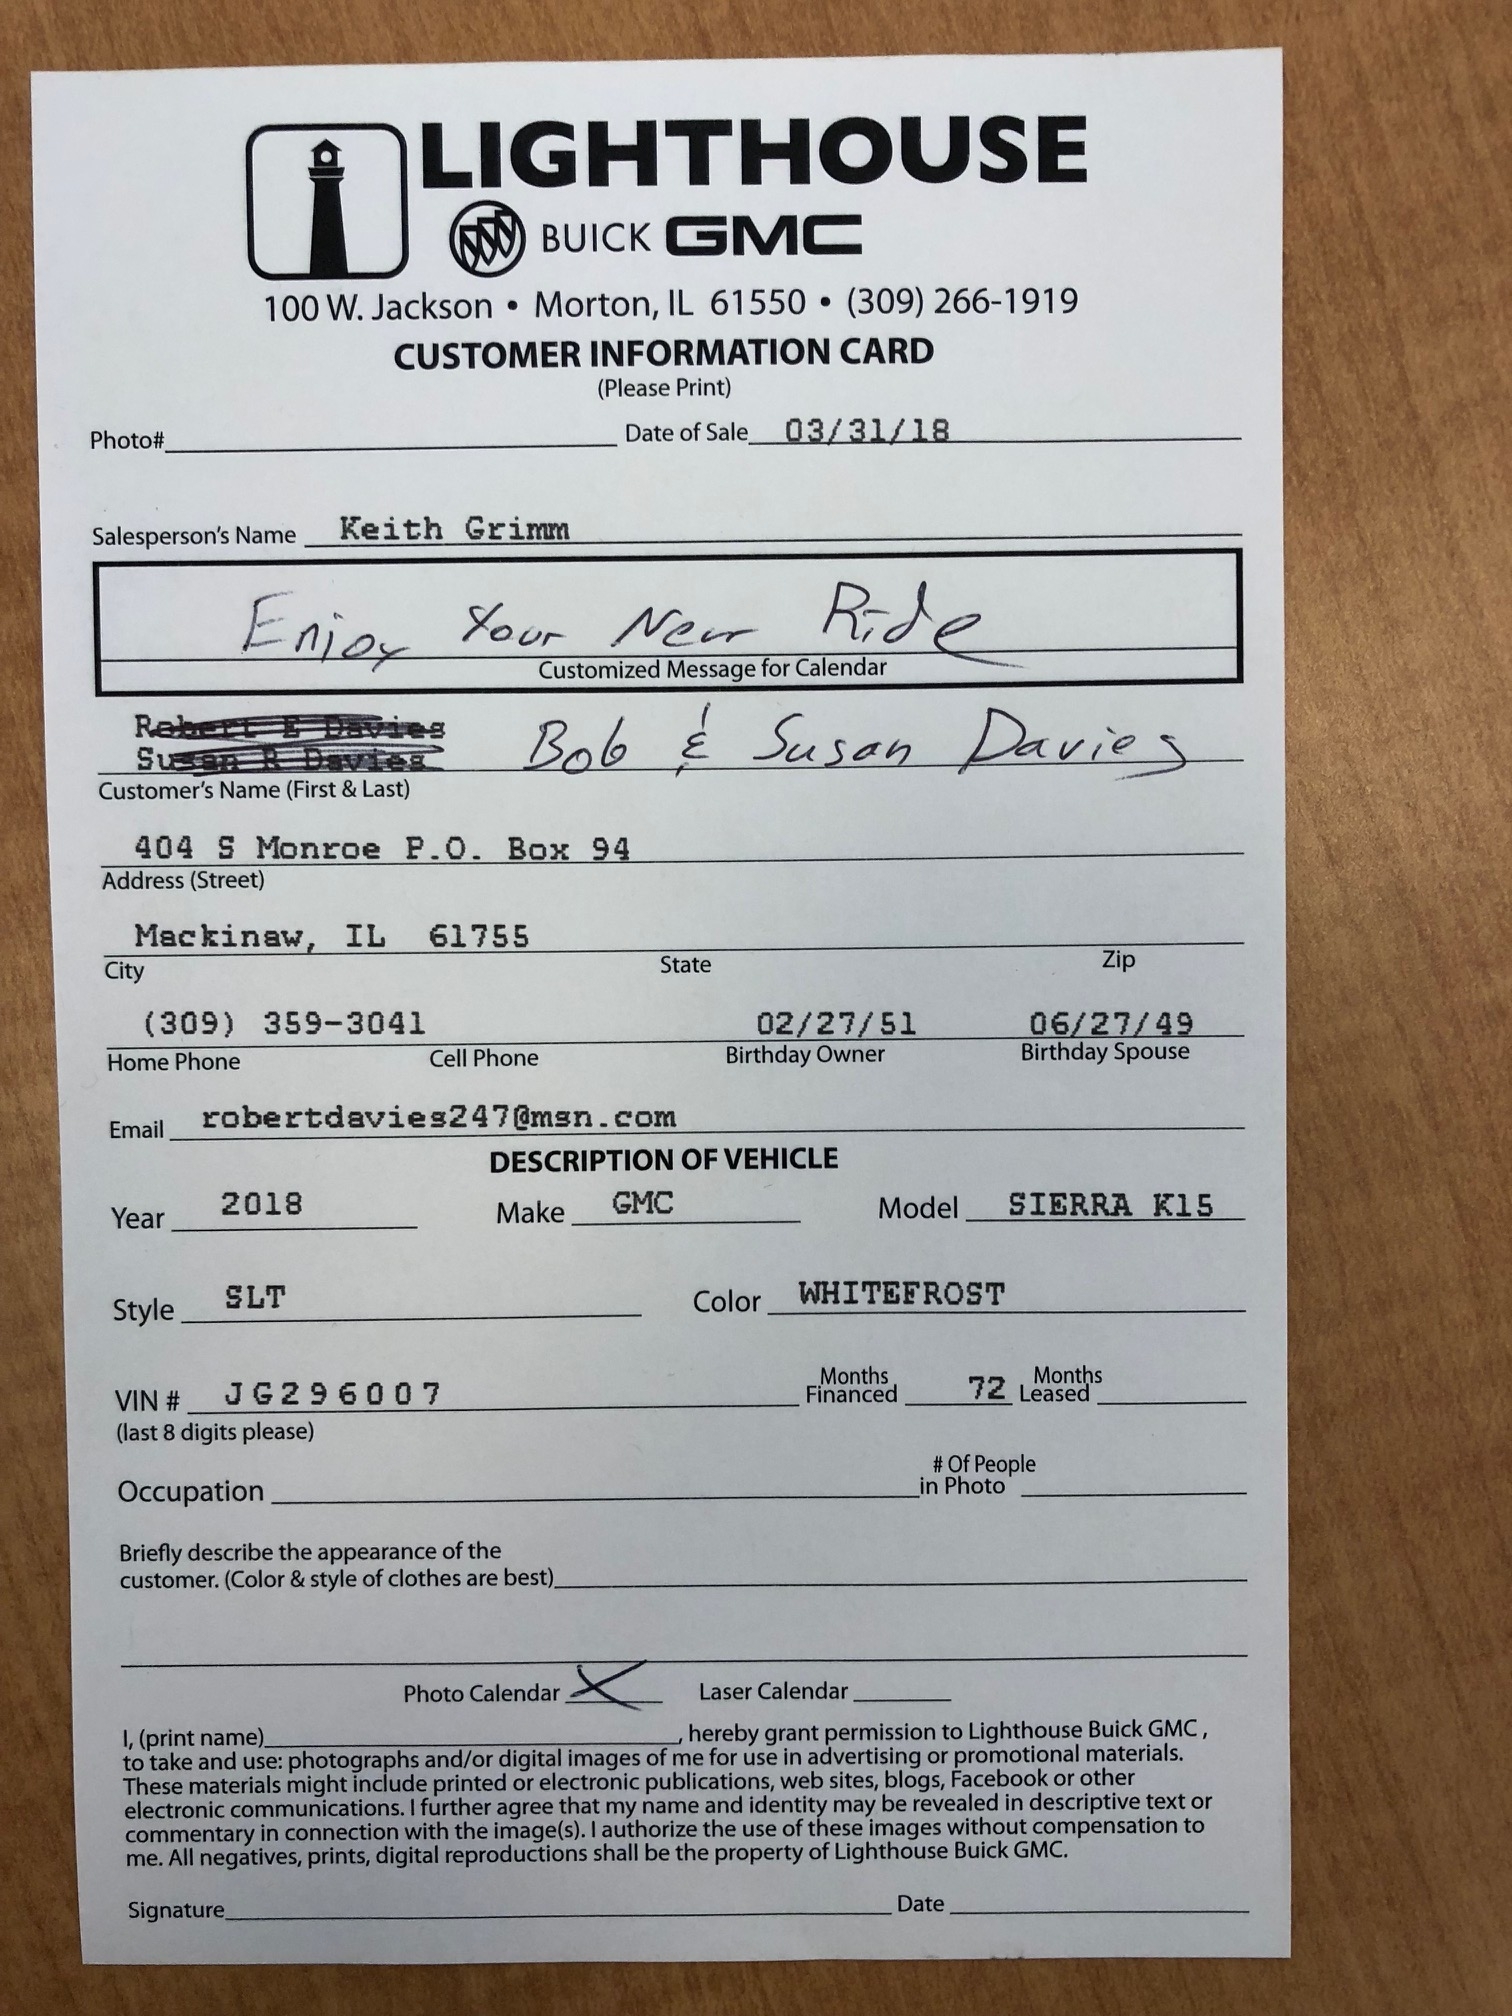 LIGHTHOUSE
BUICK GMC
100 W. Jackson • Morton, IL 61550 • (309) 266-1919
CUSTOMER INFORMATION CARD
(Please Print)
Photo# Date of Sale 03/31/18
Salesperson's Name Keith Grimm
Enjoy Your New Ride
Customized Message for Calendar
Robert E Davies
Susan R Davies Bob & Susan Davies
Customer's Name (First & Last)
404 S Monroe P.O. Box 94
Address (Street)
Mackinaw, IL 61755
City State Zip
(309) 359-3041 02/27/51 06/27/49
Home Phone Cell Phone Birthday Owner Birthday Spouse
Email robertdavies247@msn.com
DESCRIPTION OF VEHICLE
Year 2018 Make GMC Model SIERRA K15
Style SLT Color WHITEFROST
VIN # JG296007 Months Financed 72 Months Leased
(last 8 digits please)
Occupation # Of People in Photo
Briefly describe the appearance of the
customer. (Color & style of clothes are best)
Photo Calendar X Laser Calendar
I, (print name) , hereby grant permission to Lighthouse Buick GMC ,
to take and use: photographs and/or digital images of me for use in advertising or promotional materials.
These materials might include printed or electronic publications, web sites, blogs, Facebook or other
electronic communications. I further agree that my name and identity may be revealed in descriptive text or
commentary in connection with the image(s). I authorize the use of these images without compensation to
me. All negatives, prints, digital reproductions shall be the property of Lighthouse Buick GMC.
Signature Date